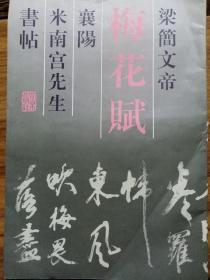 梁簡文帝
梅花賦
襄陽
米南宮先生
書帖
羅
帏
東風
吹梅畏
落盡